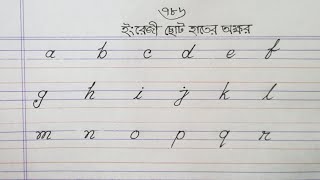 ৭৮৬
ইংরেজী ছোট হাতের অক্ষর
a b c d e f
g h i j k l
m n o p q r